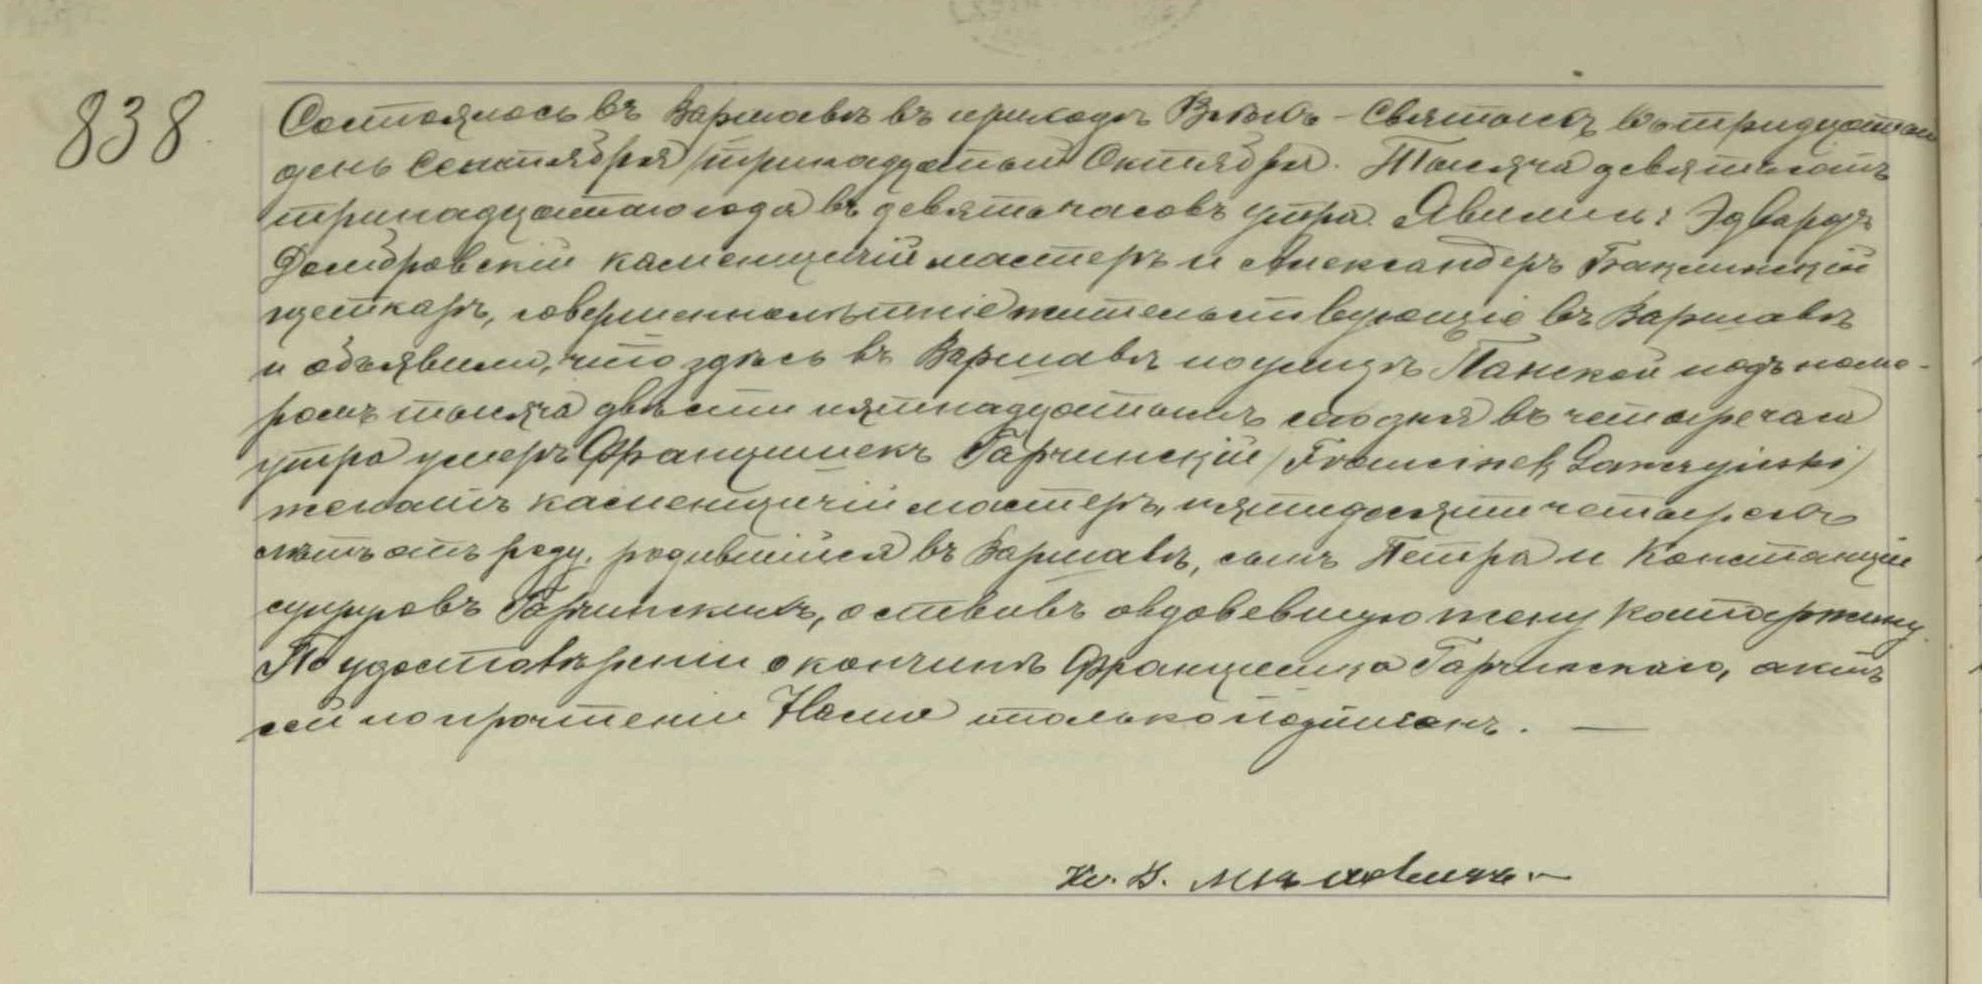 838.
Состоялось въ Варшавѣ въ приходѣ Всѣхъ-Святыхъ въ тридцатый
день Сентября /тринадцатый Октября. Тысяча девятьсотъ
тринадцатаго года въ девять часовъ утра. Явились: Эдвардъ
Домбровскій каменщичій мастеръ и Александеръ
щеткаръ, совершеннолѣтніе жительствующіе въ Варшавѣ
и объявили, что здѣсь въ Варшавѣ по улицѣ Панской подъ номе-
ромъ тысяча двѣсти пятнадцатымъ сего дня въ четыре часа
утра умеръ Францишекъ Гарчинскій /Franciszek Garczyński/
женатъ каменщичій мастеръ, пятидесяти четырехъ
лѣтъ отъ роду, родившійся въ Варшавѣ, сынъ Петра и Констанціи
супруговъ Гарчинскихъ, оставивъ овдовевшую жену Катаржину.
По удостовѣреніи о кончинѣ Францишка Гарчинскаго, актъ
сей по прочтеніи Нами только подписанъ. —
Кс. В.